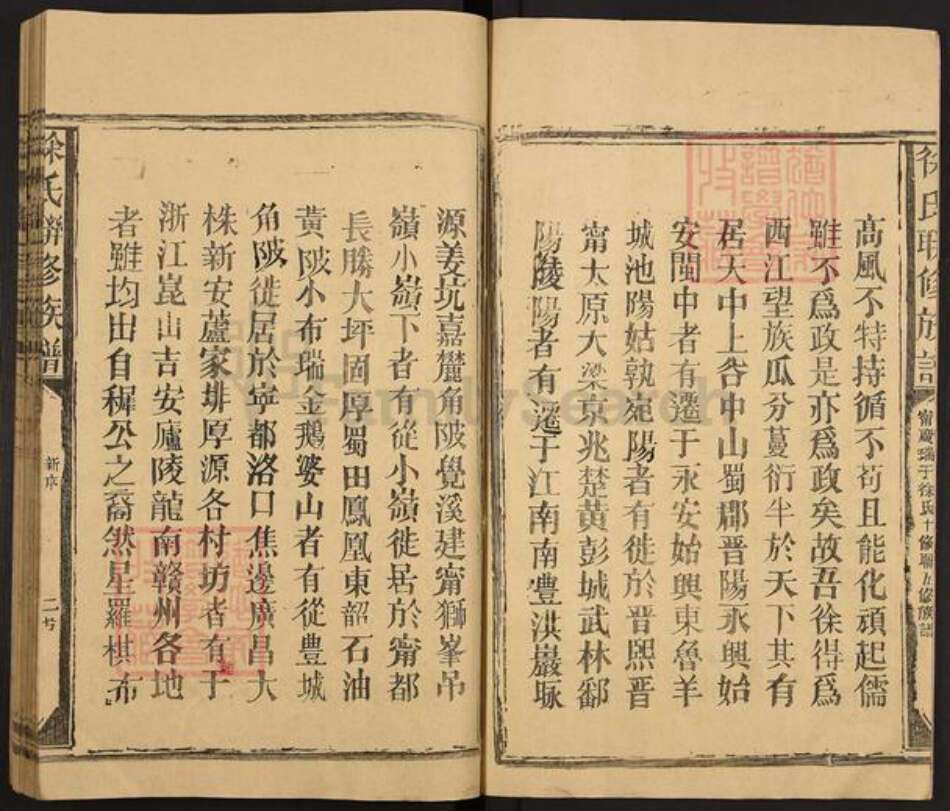 徐氏聯修族譜
甯慶瑞于徐氏十修聯五修族譜
高風不特持循不苟且能化頑起儒
雖不爲政是亦爲政矣故吾徐得爲
西江望族瓜分蔓衍半於天下其有
居大中上谷中山蜀郡晋陽永興始
安閩中者有遷于永安始興東魯羊
城池陽姑孰宛陽者有徙於晋熙晋
甯太原大梁京兆楚黄彭城武林鄱
陽陵陽者有遷于江南南豐洪巖琢
源姜坑嘉麓角陂覺溪建甯獅峯吊
嶺小嶺下者有從小嶺徙居於甯都
長勝大坪固厚蜀田鳳凰東韶石油
黄陂小布瑞金鵝婆山者有從豐城
角陂徙居於寧都洛口焦邊廣昌大
株新安蘆家排厚源各村坊者有于
浙江崑山吉安廬陵龍南贛州各地
者雖均出自穉公之裔然星羅棋布
徐氏聯修族譜
新序
FamilySearch